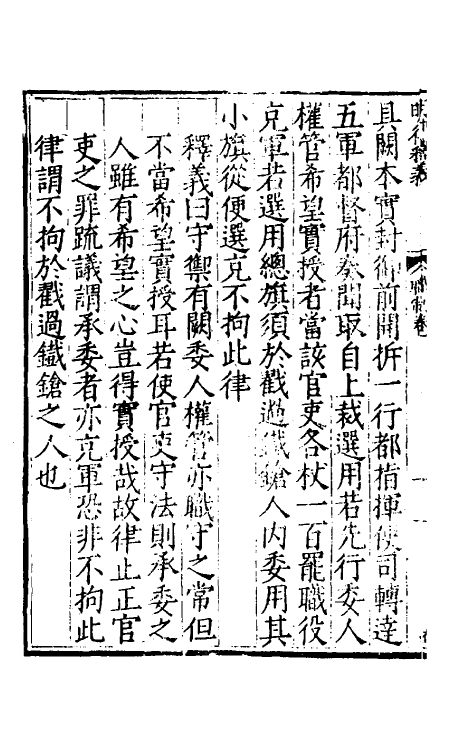 具闕本實封御前開拆一行都指揮使司轉達
五軍都督府奏聞取自上裁選用若先行委人
權管希望實授者當該官吏各杖一百罷職役
充軍若選用總旗須於戳過鐵鎗人内委用其
小旗從便選充不拘此律
釋義曰守禦有闕委人權管亦職守之常但
不當希望實授耳若使官吏守法則承委之
人雖有希望之心豈得實授哉故律止正官
吏之罪疏議謂承委者亦充軍恐非不拘此
律謂不拘於戳過鐵鎗之人也